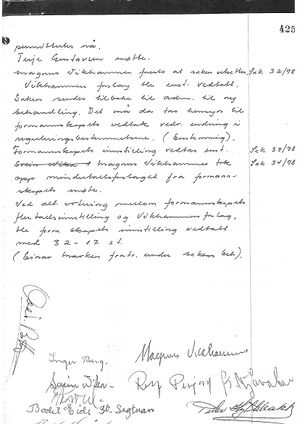 425
Terje Gustavsen møtte.
Magnus Vikhammer foreslo at saken utsettes. Sak 32/78
Vikhammers forslag ble enst. vedtatt.
Saken sendes tilbake til adm. til ny
behandling. Det må da tas hensyn til
formannskapets vedtak vedr. endring i
reguleringsbestemmelsene. (Enstemmig).
Formannskapets innstilling vedtas enst. Sak 33/78
Magnus Vikhammer tok Sak 34/78
opp mindretallsforslaget fra forman-
skapets møte.
Ved alt. votering mellom formannskapets
flertallsinnstilling og Vikhammers forslag,
ble formskapets innstilling vedtatt
med 32 - 17 st.
(Einar fratr. under sakens beh).
Inger Berg.
Magnus Vikhammer
Bodil Eide